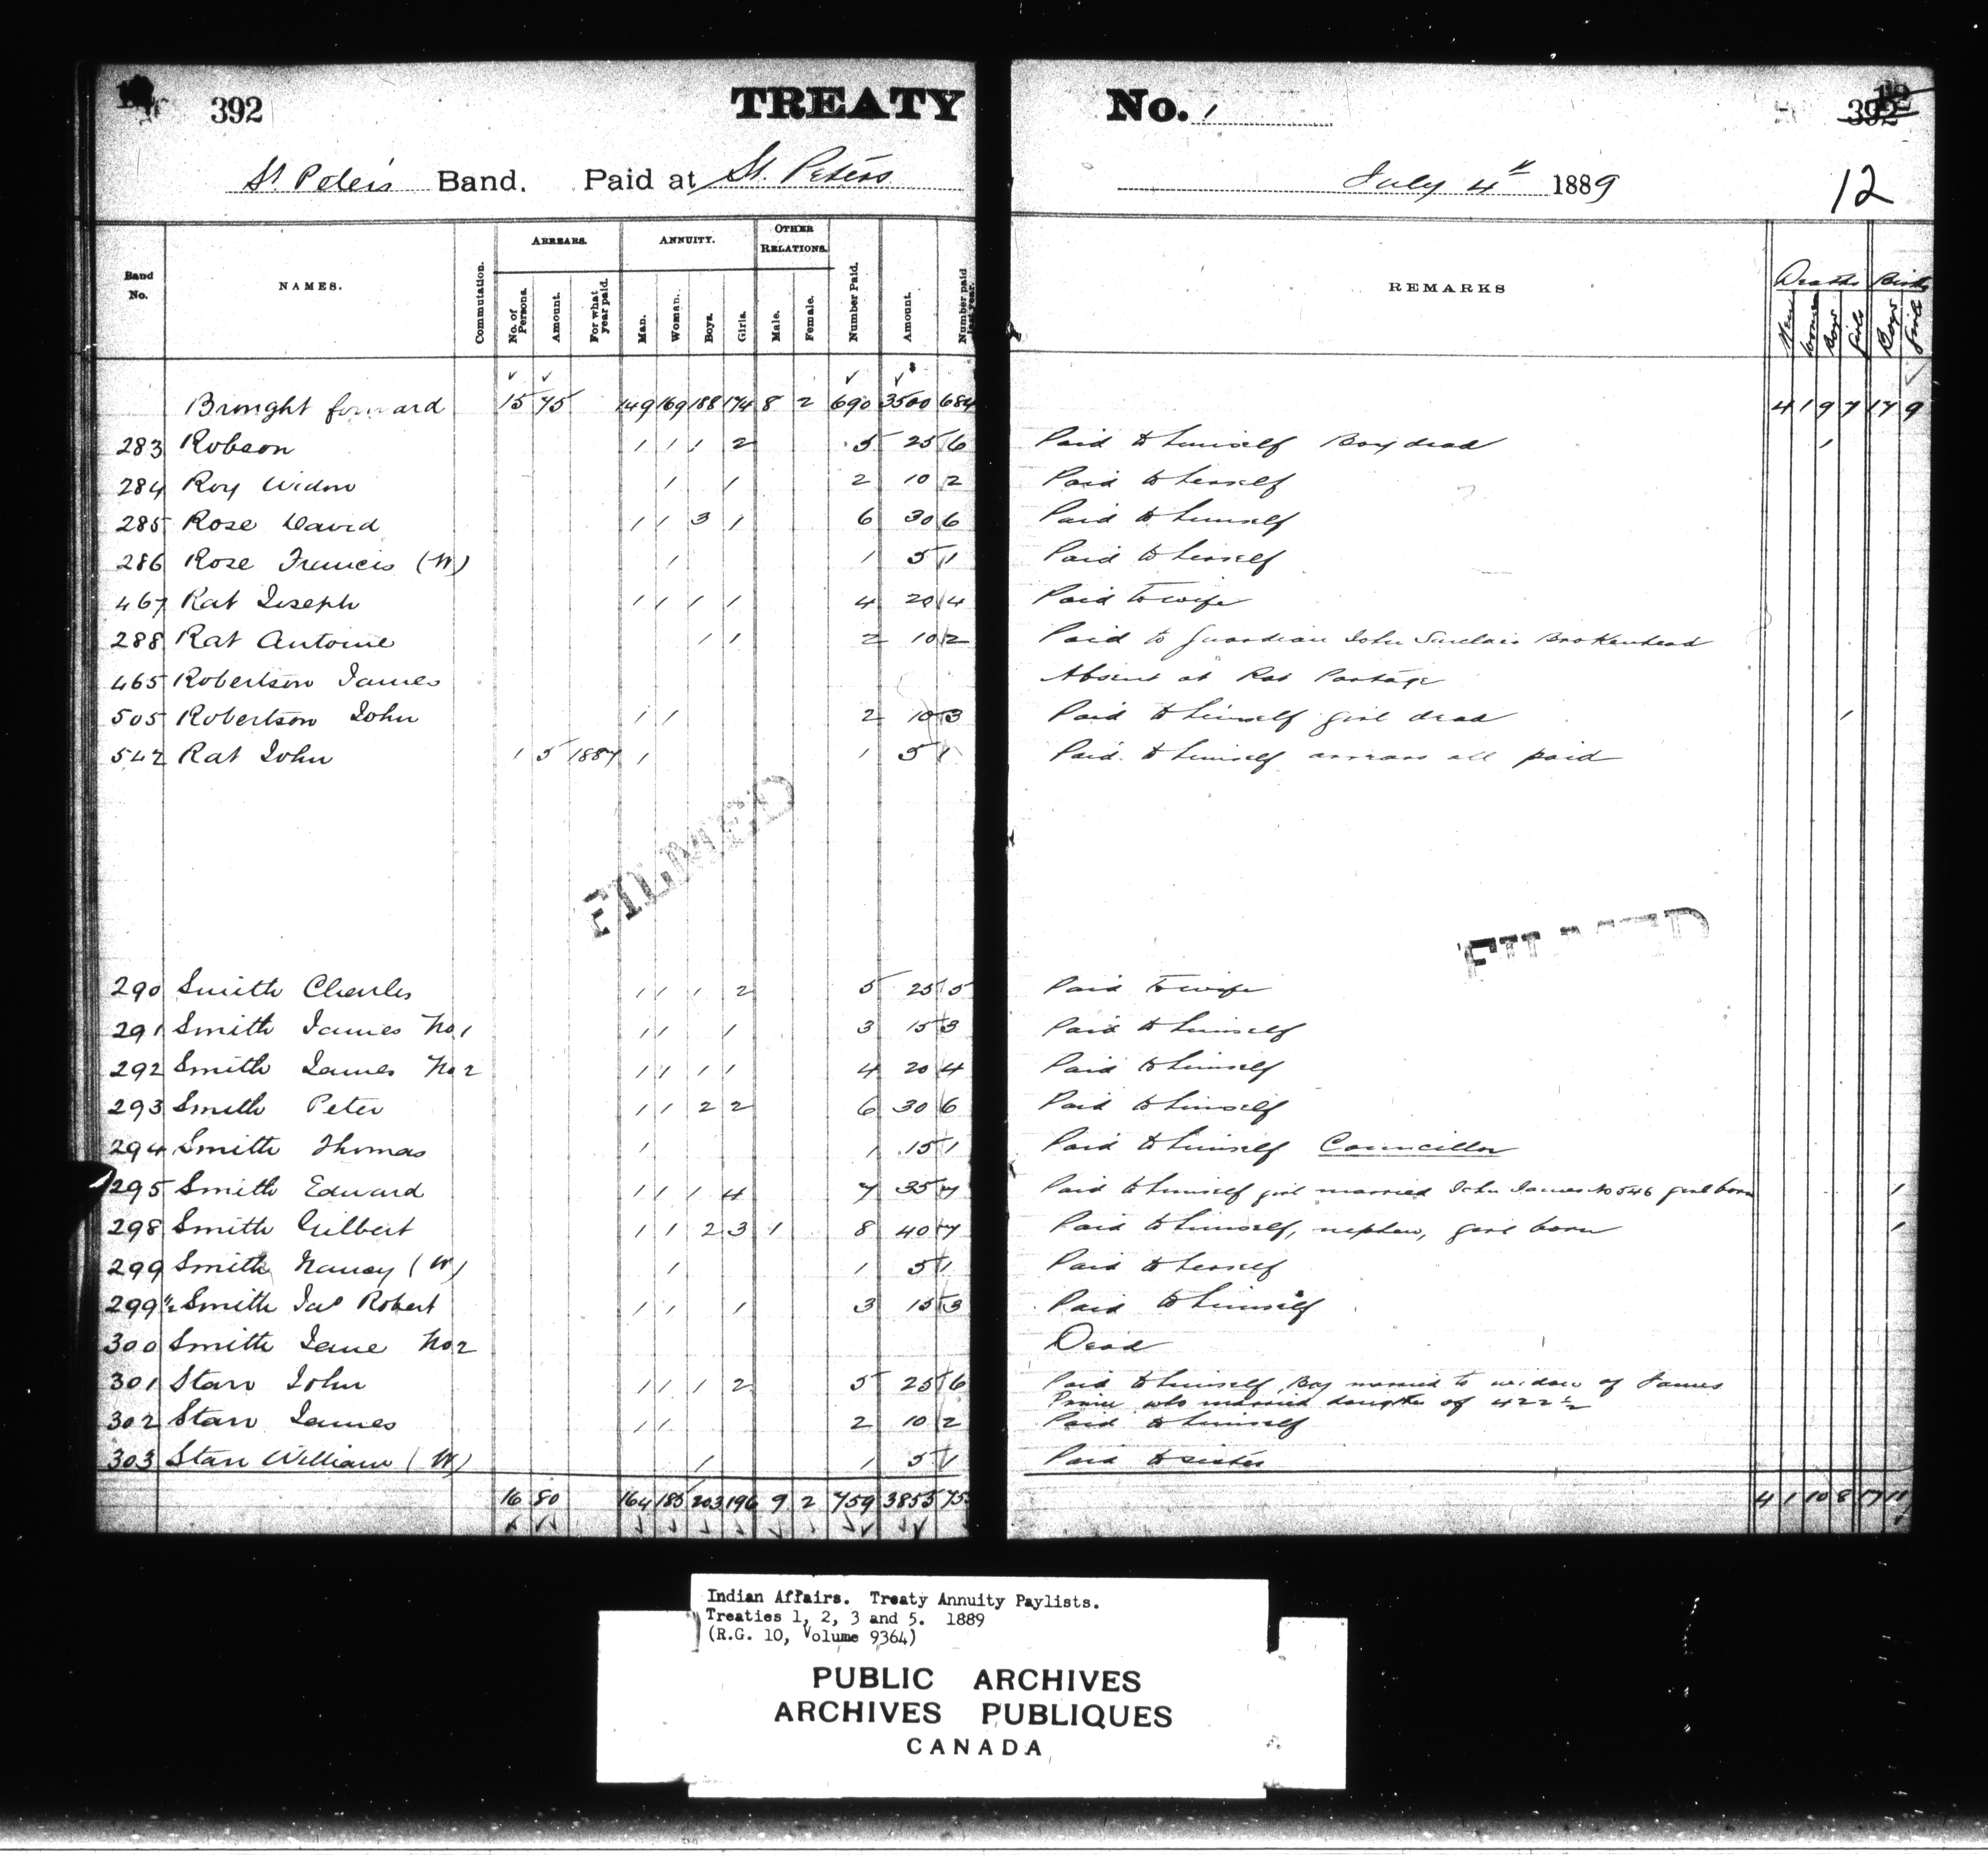 392 TREATY No. 1 392
St Peter's Band. Paid at St. Peters July 4th 1889 12
Band No. NAMES. Commutation. ARREARS. No. of Persons. Amount. For what year paid. ANNUITY. Man. Woman. Boys. Girls. OTHER RELATIONS. Male. Female. Number Paid. Amount. Number paid last year. REMARKS Deaths Men Women Boys Girls Births Boys Girls
Brought forward 15 75 149 169 188 174 8 2 690 3500 684 4 1 9 7 17 9
283 Robson 1 1 1 2 5 25 6 Paid to himself Boy dead 1
284 Roy Widow 1 1 2 10 2 Paid to herself
285 Rose David 1 1 3 1 6 30 6 Paid to himself
286 Rose Francis (W) 1 1 5 1 Paid to herself
467 Rat Joseph 1 1 1 1 4 20 4 Paid to wife
288 Rat Antoine 1 1 2 10 2 Paid to guardian John Sinclair Brokenhead
465 Robertson James Absent at Rat Portage
505 Robertson John 1 1 2 10 3 Paid to himself girl dead 1
542 Rat John 1 5 1887 1 1 5 1 Paid to himself arrears all paid
FILMED FILMED
290 Smith Charles 1 1 1 2 5 25 5 Paid to wife
291 Smith James No 1 1 1 1 3 15 3 Paid to himself
292 Smith James No 2 1 1 1 1 4 20 4 Paid to himself
293 Smith Peter 1 1 2 2 6 30 6 Paid to himself
294 Smith Thomas 1 1 15 1 Paid to himself Councillor
295 Smith Edward 1 1 1 4 7 35 7 Paid to himself girl married John James No 546 girl born 1
298 Smith Gilbert 1 1 2 3 1 8 40 7 Paid to himself, nephew, girl born 1
299 Smith Nancy (W) 1 1 5 1 Paid to herself
299½ Smith Jas Robert 1 1 1 3 15 3 Paid to himself
300 Smith Jane No 2 Dead
301 Starr John 1 1 1 2 5 25 6 Paid to himself Boy married to widow of James
Prince who married daughter of 422½
302 Starr James 1 1 2 10 2 Paid to himself
303 Starr William (W) 1 1 5 1 Paid to sister
16 80 164 185 203 196 9 2 759 3855 75 4 1 10 8 17 11
Indian Affairs. Treaty Annuity Paylists.
Treaties 1, 2, 3 and 5. 1889
(R.G. 10, Volume 9364)
PUBLIC ARCHIVES
ARCHIVES PUBLIQUES
CANADA